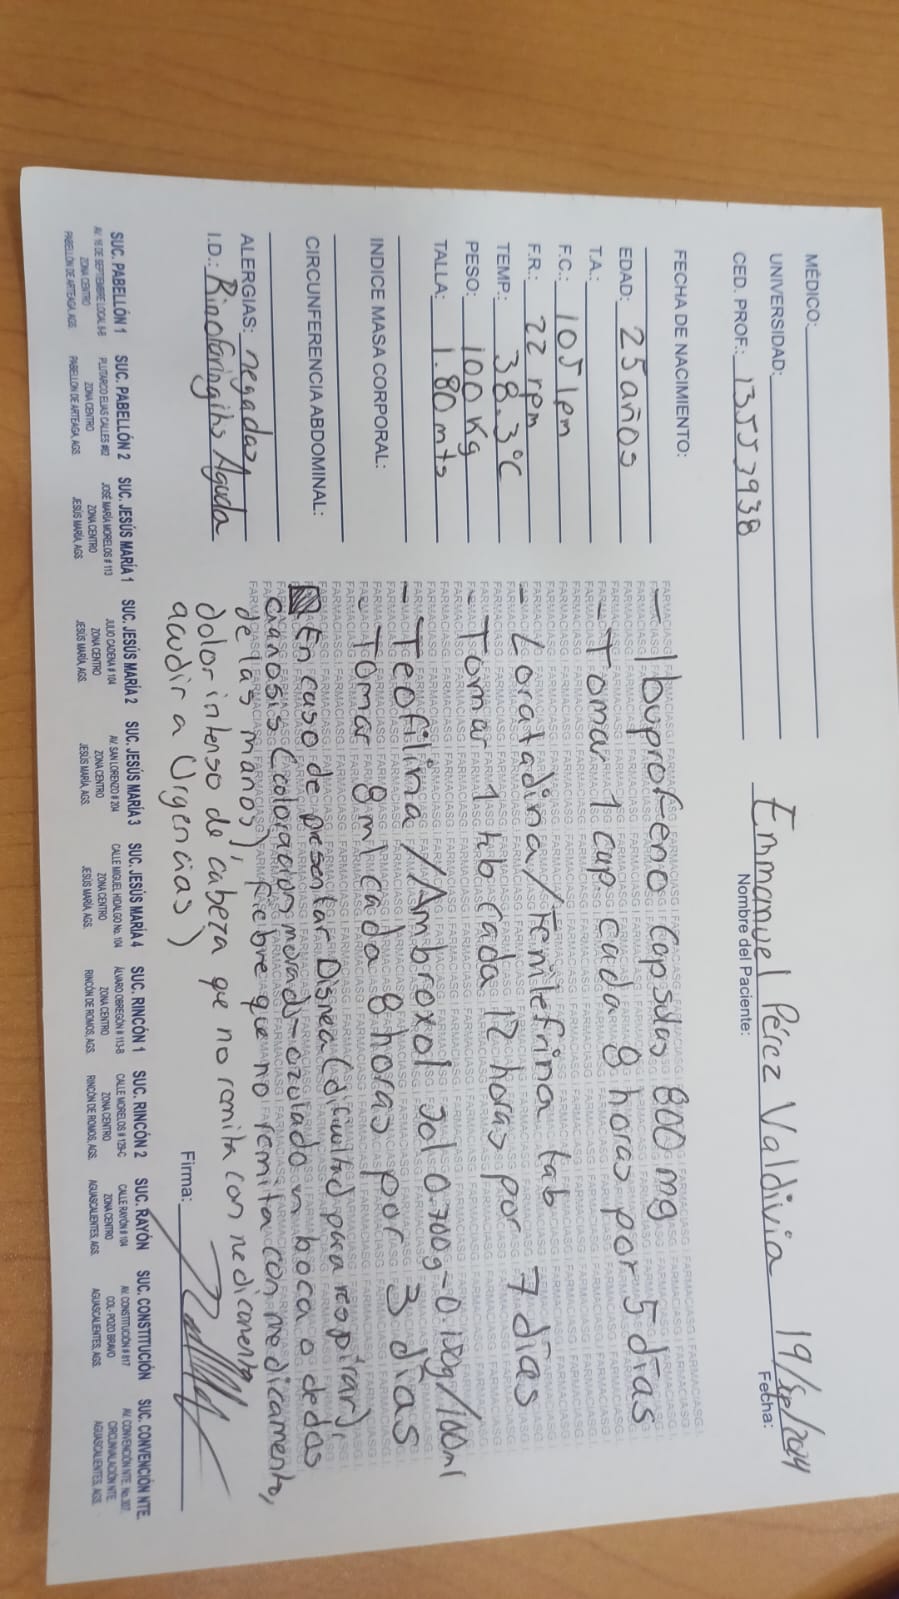 MÉDICO:
UNIVERSIDAD:
CED. PROF.: 13553938
Emmanuel Pérez Valdivia 19/sep/2024
Nombre del Paciente: Fecha:
FECHA DE NACIMIENTO:
EDAD: 25 años
T.A.:
F.C.: 105 lpm
F.R.: 22 rpm
TEMP.: 38.3°C
PESO: 100 Kg
TALLA: 1.80 mts
INDICE MASA CORPORAL:
CIRCUNFERENCIA ABDOMINAL:
ALERGIAS: negadas
I.D.: Rinofaringitis Aguda
- Ibuprofeno Capsulas 800 mg
- Tomar 1 cap. cada 8 horas por 5 días
- Loratadina/Fenilefrina tab
- Tomar 1 tab cada 12 horas por 7 días
- Teofilina/Ambroxol Sol 0.700g-0.150g/100ml
- Tomar 8 ml cada 8 horas por 3 días
En caso de presentar Disnea (dificultad para respirar),
cianosis (coloración morado-azulado en boca o dedos
de las manos), fiebre que no remita con medicamento,
dolor intenso de cabeza qe no remita con medicamento
acudir a Urgencias)
Firma:
SUC. PABELLÓN 1
AV. 16 DE SEPTIEMBRE LOCAL 6-B
ZONA CENTRO
PABELLÓN DE ARTEAGA, AGS.
SUC. PABELLÓN 2
PLUTARCO ELIAS CALLES #62
ZONA CENTRO
PABELLÓN DE ARTEAGA, AGS.
SUC. JESÚS MARÍA 1
JOSÉ MARÍA MORELOS # 113
ZONA CENTRO
JESÚS MARÍA, AGS.
SUC. JESÚS MARÍA 2
JULIO CADENA # 104
ZONA CENTRO
JESÚS MARÍA, AGS.
SUC. JESÚS MARÍA 3
AV. SAN LORENZO # 204
ZONA CENTRO
JESÚS MARÍA, AGS.
SUC. JESÚS MARÍA 4
CALLE MIGUEL HIDALGO No. 104
ZONA CENTRO
JESÚS MARÍA, AGS.
SUC. RINCÓN 1
ÁLVARO OBREGÓN # 113-B
ZONA CENTRO
RINCÓN DE ROMOS, AGS.
SUC. RINCÓN 2
CALLE MORELOS # 129-C
ZONA CENTRO
RINCÓN DE ROMOS, AGS.
SUC. RAYÓN
CALLE RAYÓN # 104
ZONA CENTRO
AGUASCALIENTES, AGS.
SUC. CONSTITUCIÓN
AV. CONSTITUCIÓN # 817
COL. POZO BRAVO
AGUASCALIENTES, AGS.
SUC. CONVENCIÓN NTE.
AV. CONVENCIÓN NTE. No.
CIRCUNVALACIÓN NTE.
AGUASCALIENTES, AGS.